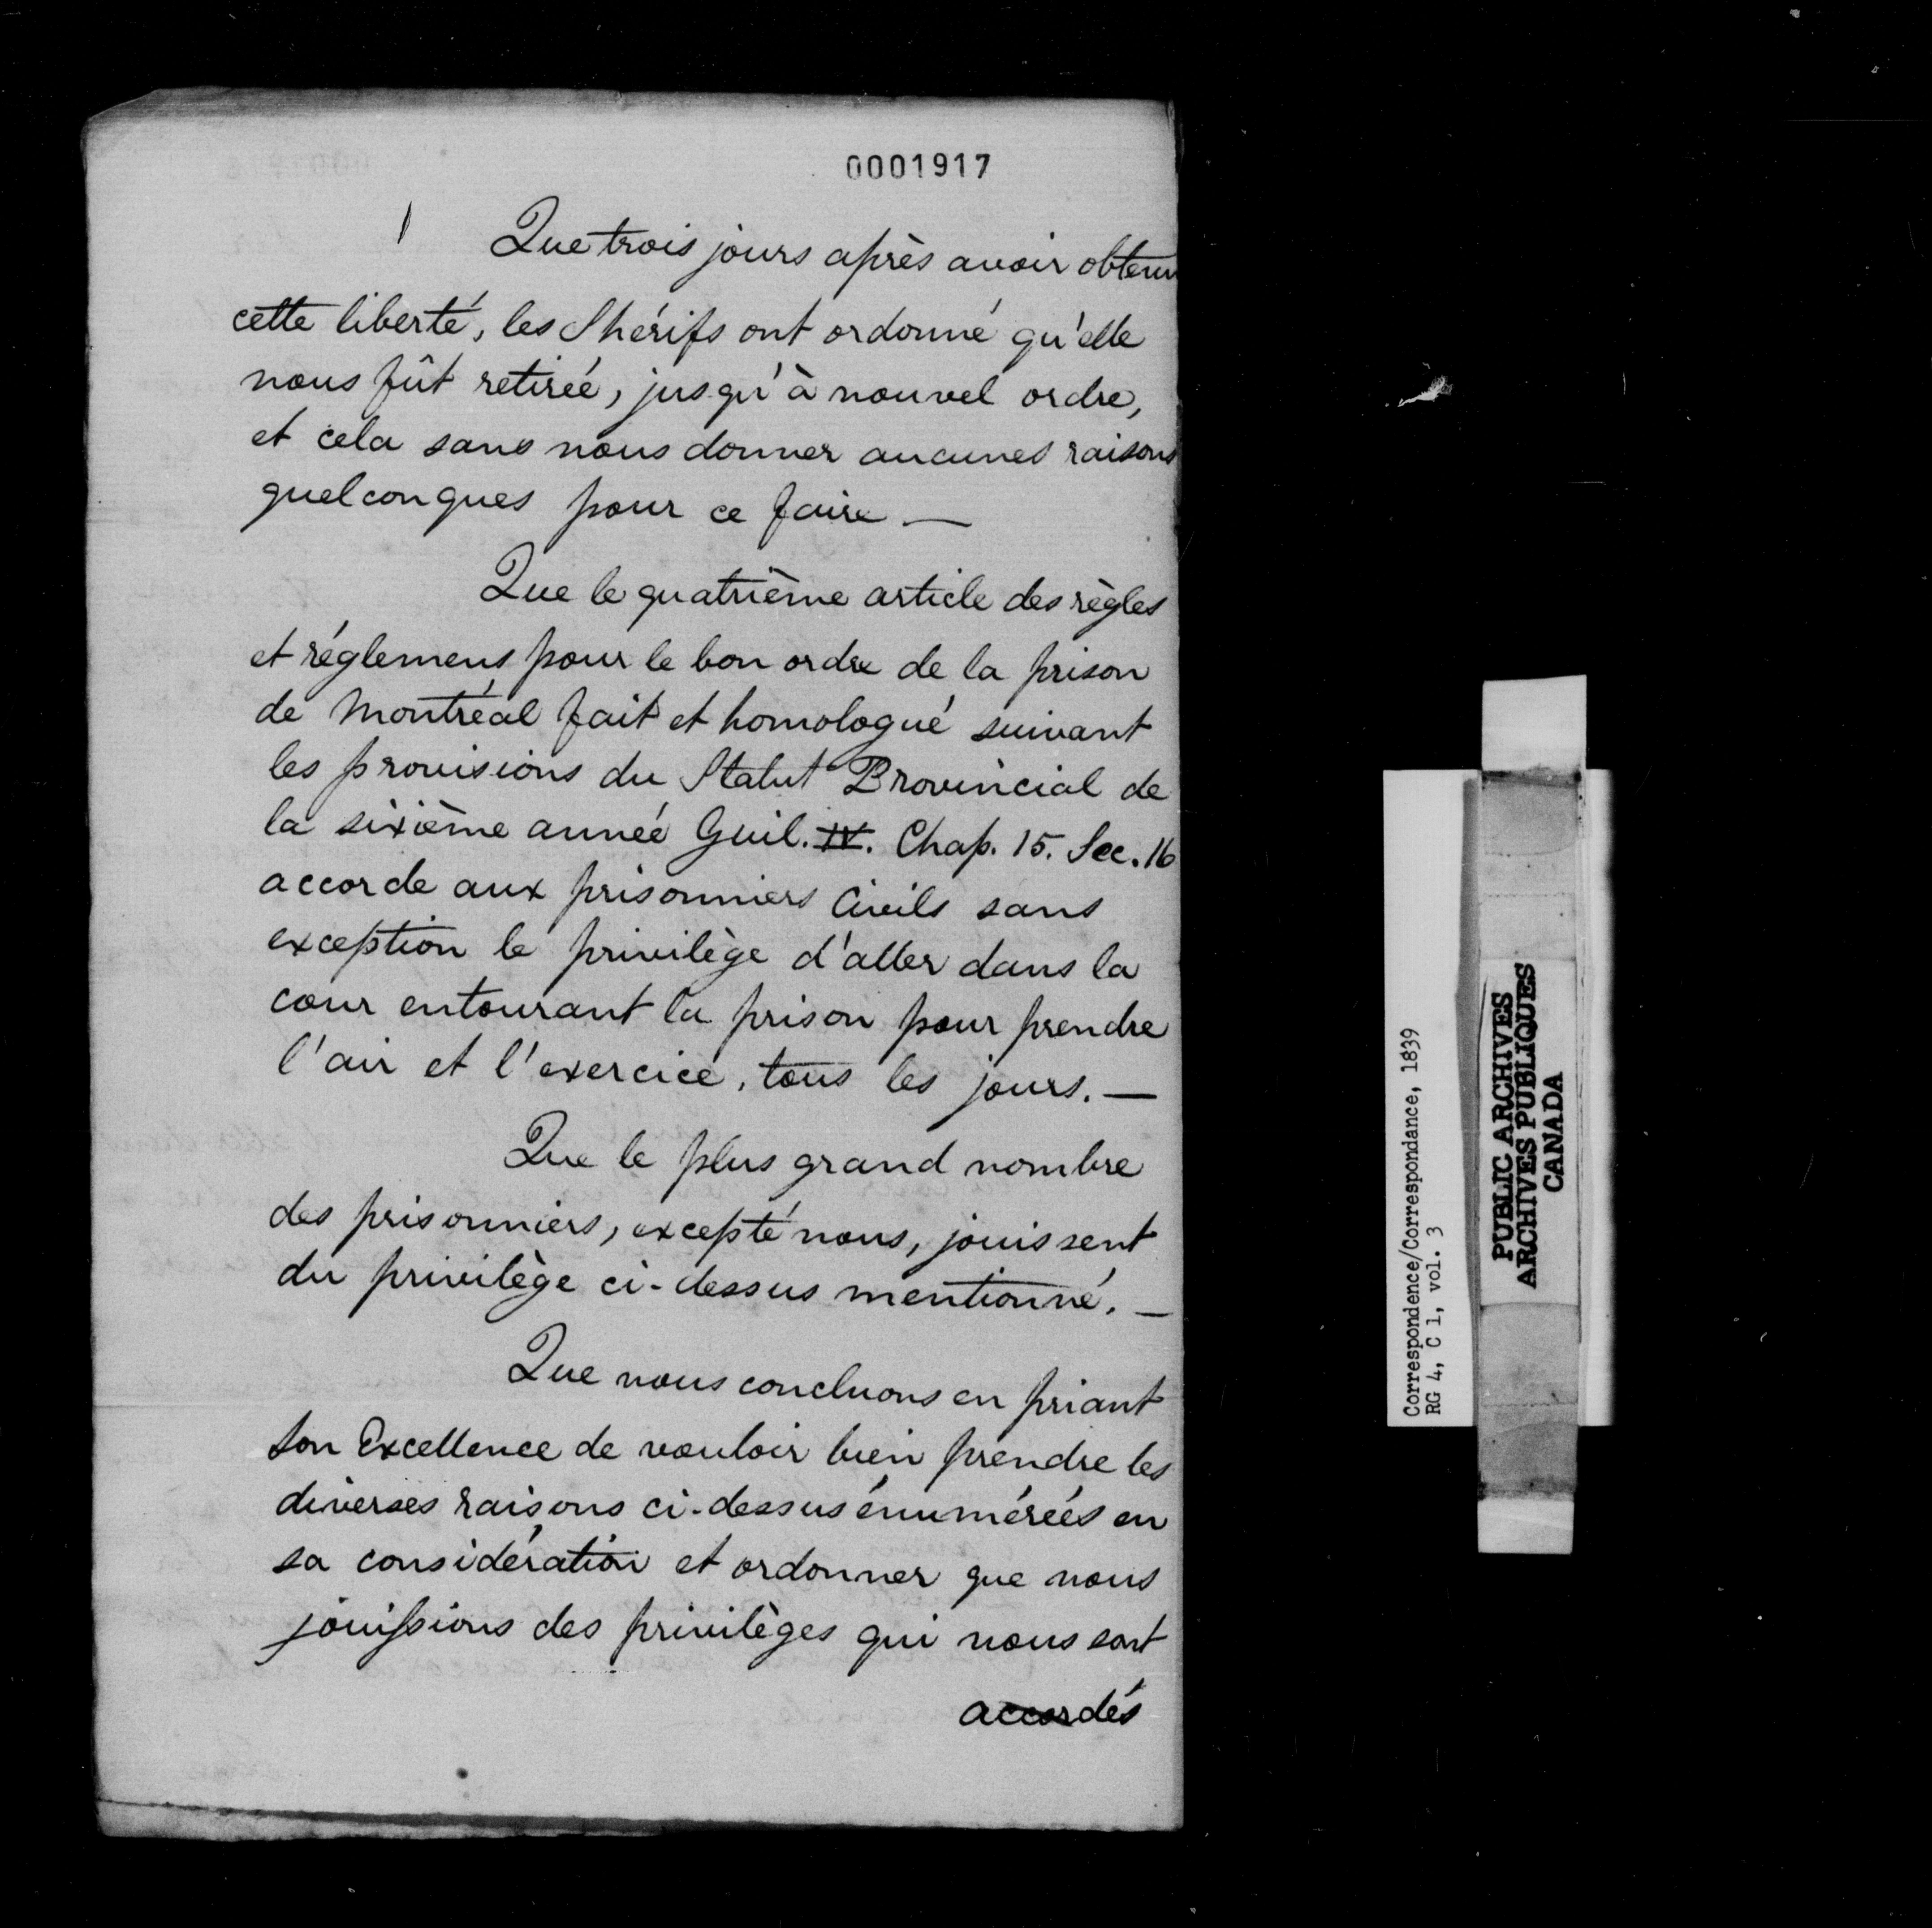 0001917
Que trois jours après avoir obtenu
cette liberté, les Shérifs ont ordonné qu'elle
nous fût retirée, jusqu'à nouvel ordre,
et cela sans nous donner aucunes raisons
quelconques pour ce faire —
Que le quatrième article des règles
et réglemens pour le bon ordre de la prison
de Montréal fait et homologué suivant
les provisions du Statut Provincial de
la sixième année Guil. IV. Chap. 15. Sec. 16
accorde aux prisonniers Civils sans
exception le privilège d'aller dans la
cour entourant la prison pour prendre
l'air et l'exercice, tous les jours. —
Que le plus grand nombre
des prisonniers, excepté nous, jouissent
du privilège ci-dessus mentionné. —
Que nous concluons en priant
Son Excellence de vouloir bien prendre les
diverses raisons ci-dessus énumérées en
sa considération et ordonner que nous
jouissions des privilèges qui nous sont
accordés
Correspondence/Correspondance, 1839
RG 4, C 1, vol. 3
PUBLIC ARCHIVES
ARCHIVES PUBLIQUES
CANADA